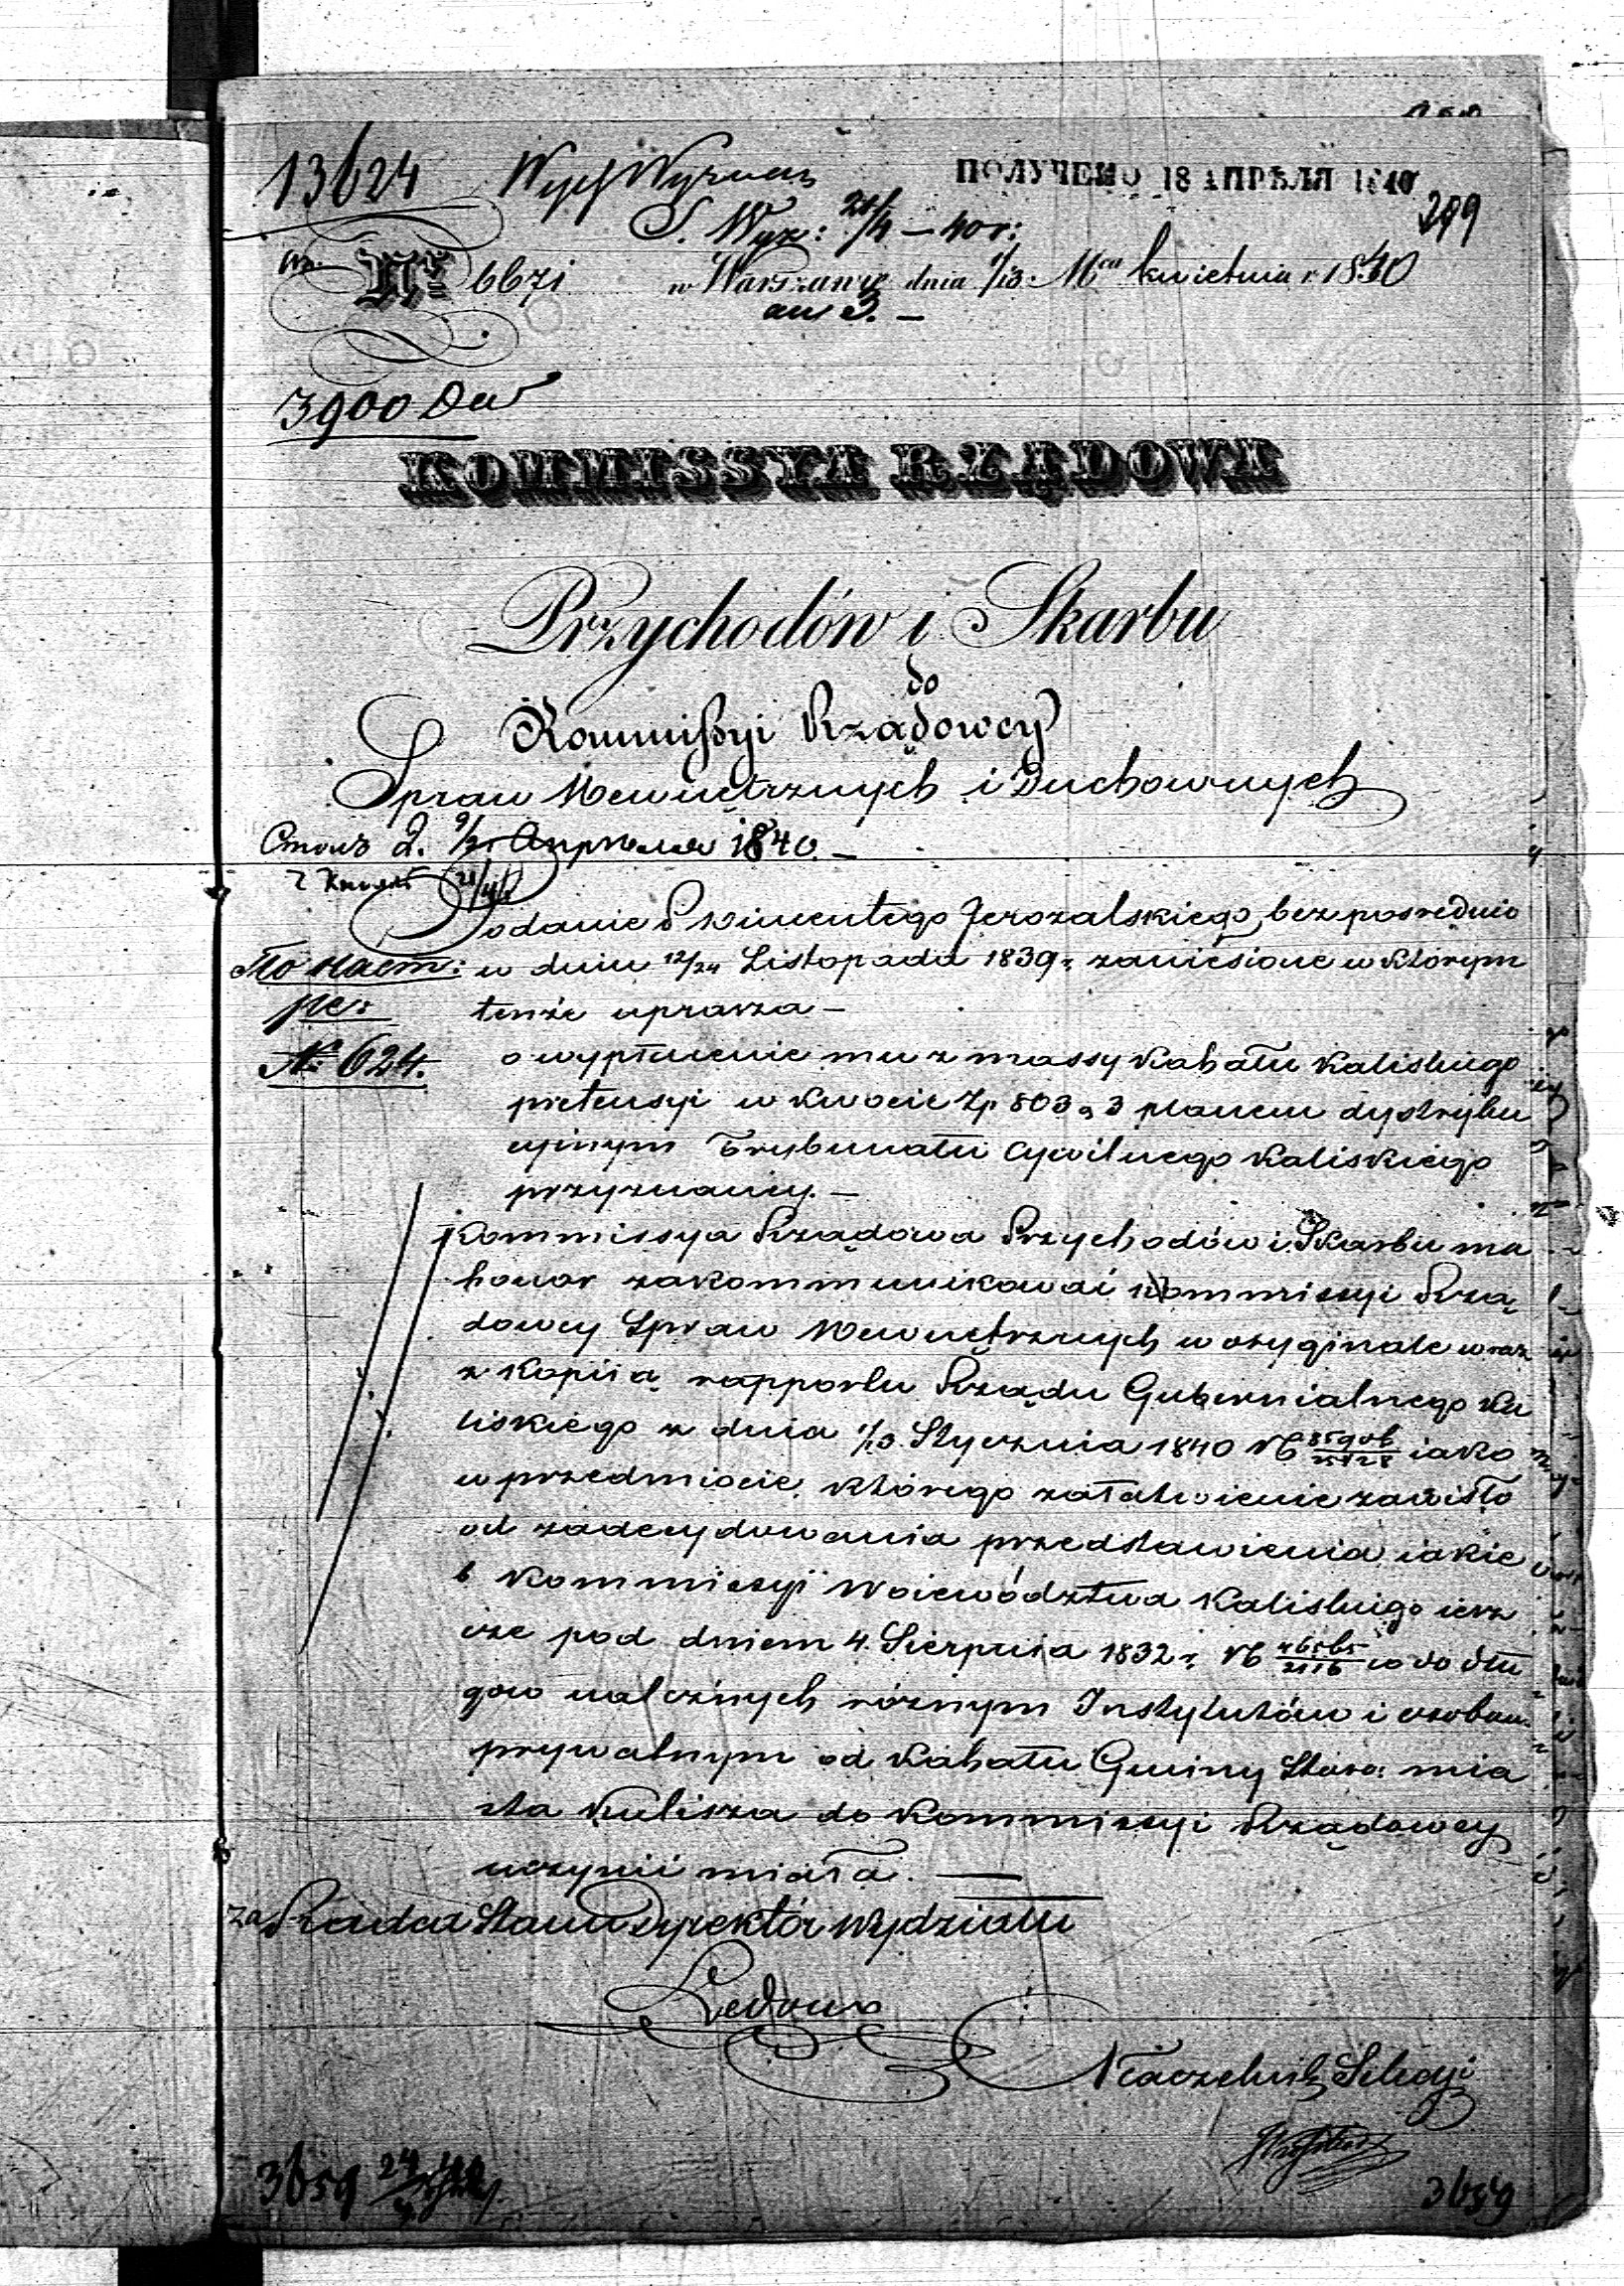 13624
ПОЛУЧЕНО 18 АПРѢЛЯ 1840
S. Wyz: 21/4 – 40 r:
209
Nr 6671 w Warszawie dnia 1/13 Mca kwietnia r. 1840
3900
KOMMISSYA RZĄDOWA
Przychodów i Skarbu
do
Kommissyi Rządowey
Spraw Wewnętrznych i Duchownych
Столъ 2. 9/21 Апрѣля 1840. –
Podanie P Wincentego Jerozalskiego bezpośrednio
По наст:
w dniu 12/24 Listopada 1839 r. zaniesione w którym
ре:
tenże uprasza –
№ 624.
o wypłacenie mu z massy Kahału Kaliskiego
pretensyi w kwocie Zp 803 g 3 planem dystrybu
cyinym Trybunału Cywilnego Kaliskiego
przyznaney. –
Kommissya Rządowa Przychodów i Skarbu ma
honor zakommunikować Kommissyi Rzą
dowey Spraw Wewnętrznych w oryginale wraz
z kopiią rapportu Rządu Gubernialnego Ka
liskiego z dnia 1/13 Stycznia 1840 N iako
w przedmiocie, którego załatwienie zawisło
od zadecydowania przedstawienia iakie
b Kommissyi Woiewództwa Kaliskiego iesz
cze pod dniem 4. Sierpnia 1832 r. N co do dłu
gów należnych różnym Instytutów i osobom
prywatnym od Kahału Gminy Staro: mia
sta Kalisza do Kommissyi Rządowey
uczynić miała. —
za Radca Stanu Dyrektór Wydziału
Ledoux
Naczelnik Sekcyi
3659
3659